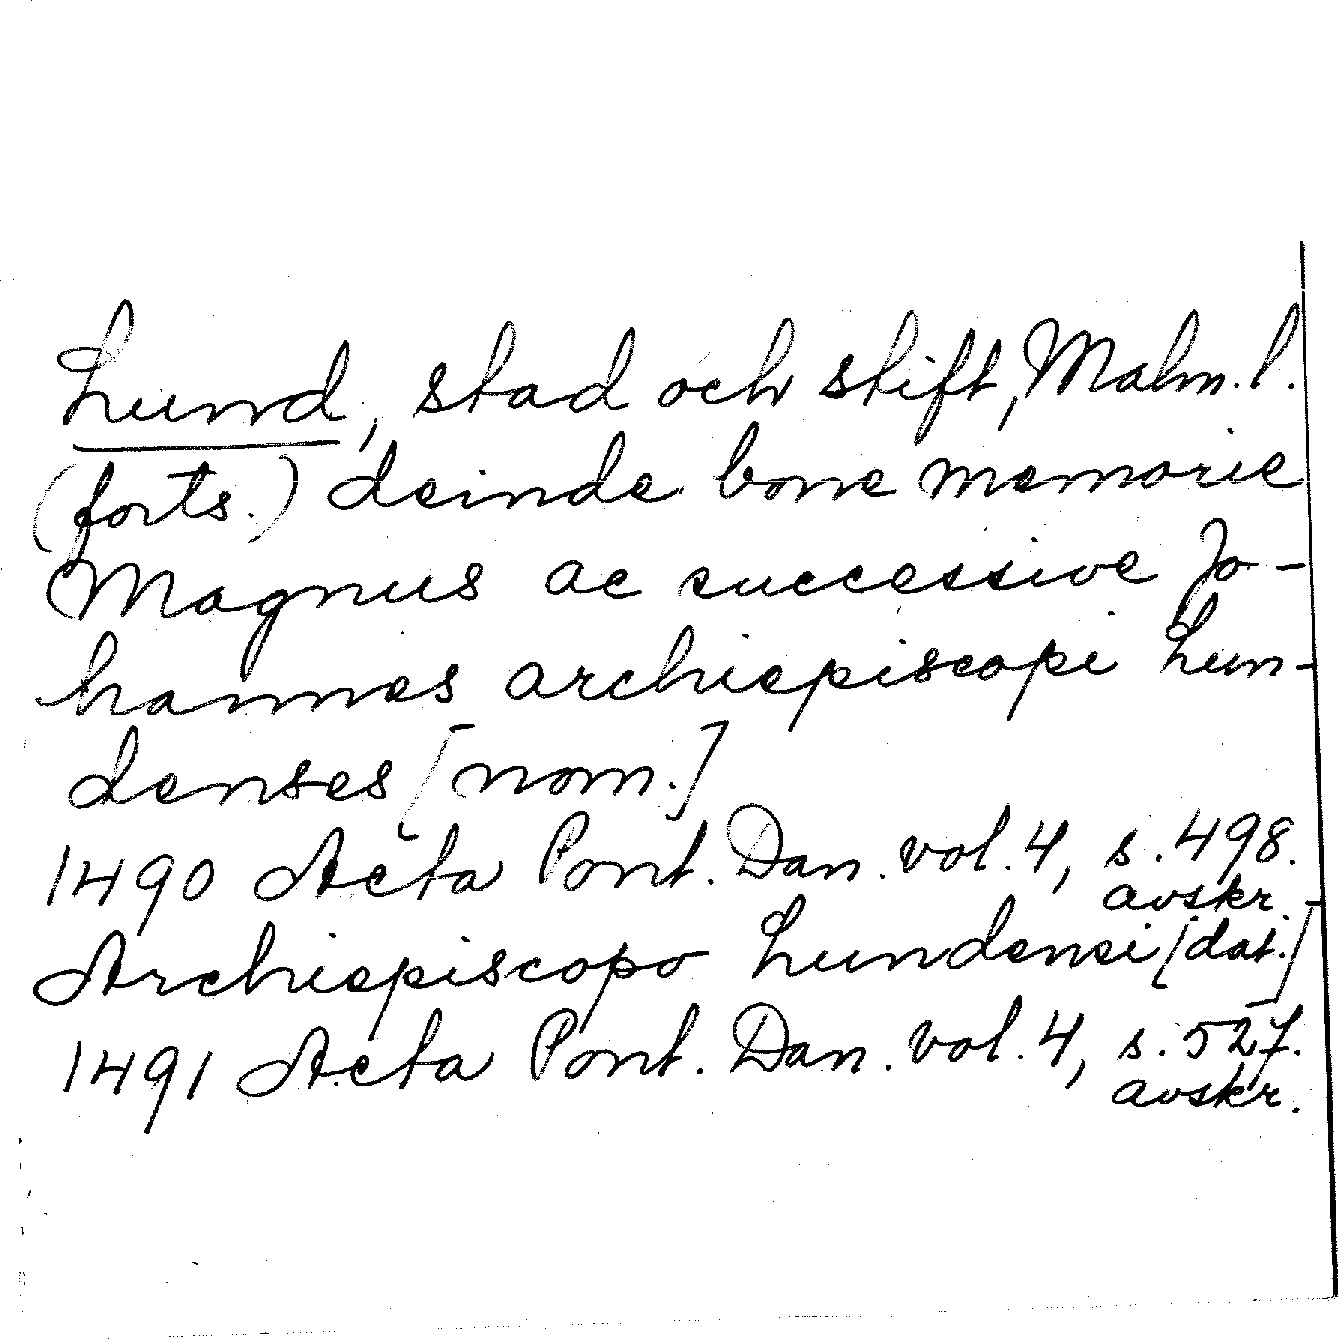 Lund, stad och stift, Malm. l.
(forts.) deinde bone memorie
Magnus ac successive Jo-
hannes archiepiscopi Lun-
denses [nom.]
1490 Acta Pont. Dan. vol. 4, s. 498.
avskr.
Archiepiscopo Lundensi [dat.]
1491 Acta Pont. Dan. vol. 4, s. 527.
avskr.